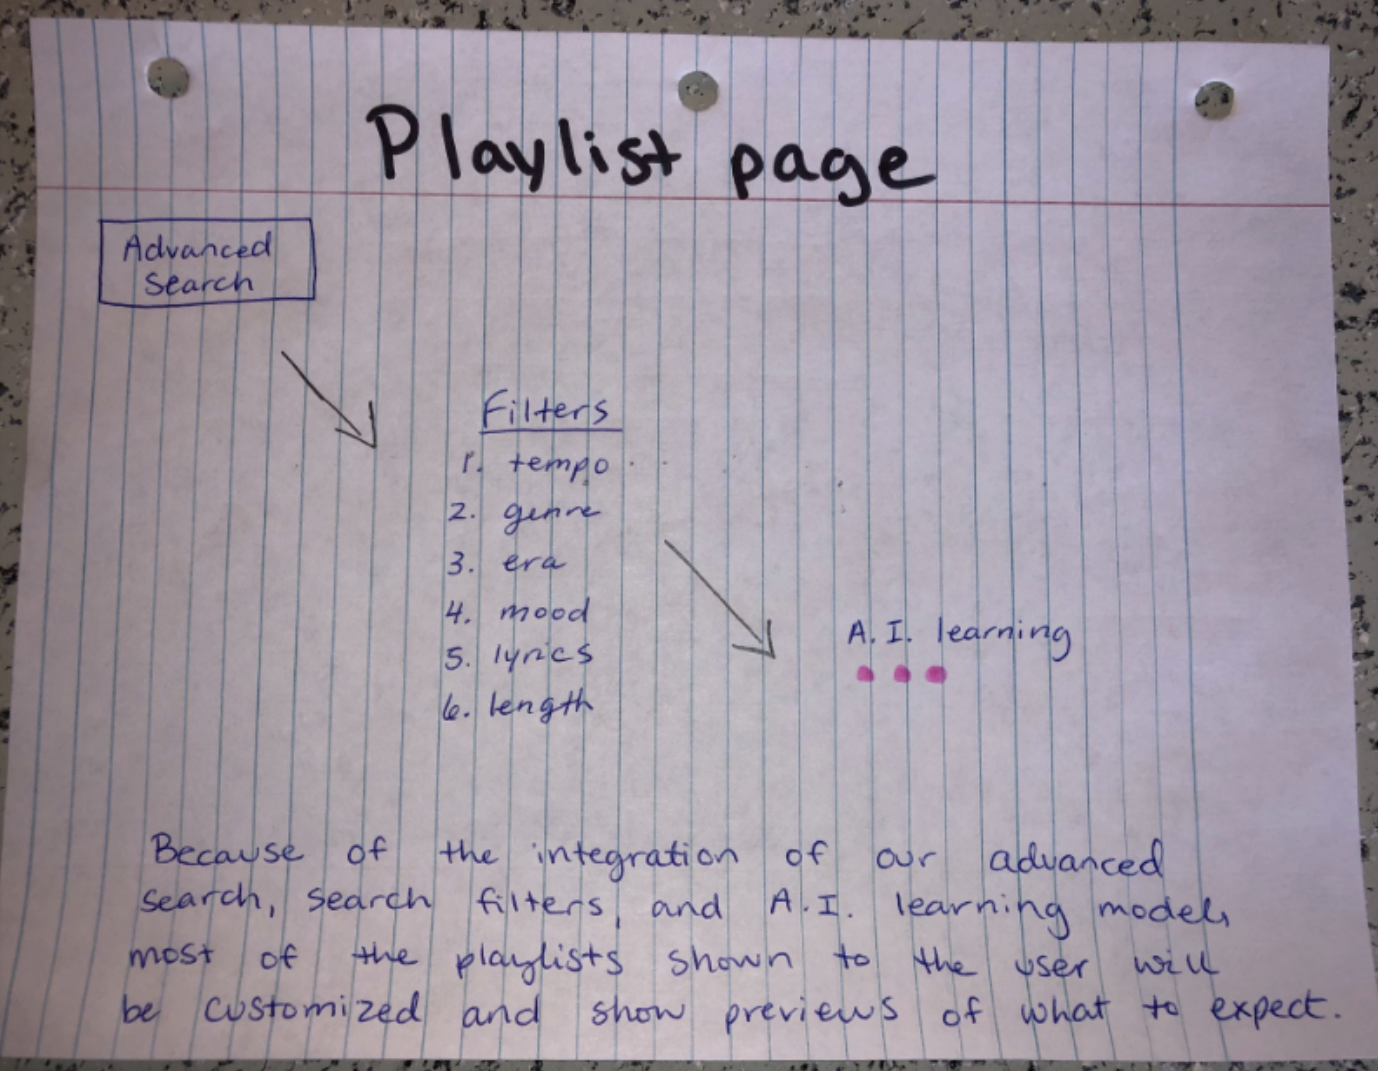 Playlist page
Advanced
Search
Filters
1. tempo
2. genre
3. era
4. mood
5. lyrics
6. length
A.I. learning
Because of the integration of our advanced
search, search filters, and A.I. learning model,
most of the playlists shown to the user will
be customized and show previews of what to expect.